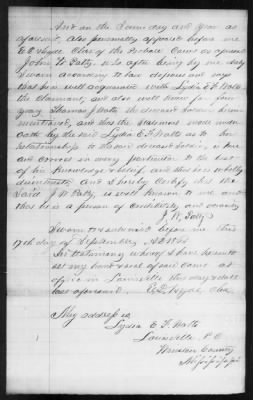 And on the same day and year as
aforesaid, also personally appeared before me
E. Hyde Clerk of the Probate Court as aforesaid
John W. Patty, who after being by me duly
sworn according to law deposes and says
that he is well acquainted with Lydia E. F. Watts
the claimant, and also well knew
Thomas J. Watts the deceased soldier
and that the statement made under
oath by the said Lydia E. F. Watts as to her
relationship to the said deceased soldier, is true
and correct in every particular to the best
of his knowledge & belief, and that he is wholly
disinterested, and I hereby Certify that the
said J. W. Patty, is well known to me and
that he is a person of credibility and veracity
J. W. Patty
Sworn to & subscribed before me this
17th day of September, A.D.
In testimony whereof I have hereunto
set my hand & seal of said Court at
office in Louisville this day & date
last aforesaid. Hyde Clk
My address is
Lydia E. F. Watts
Louisville P.O.
Winston County